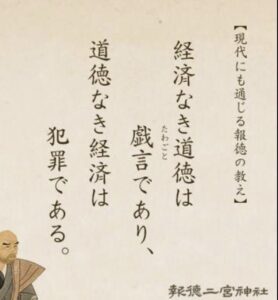 【現代にも通じる報徳の教え】
経済なき道徳は
戯言であり、
たわごと
道徳なき経済は
犯罪である。
報徳二宮神社